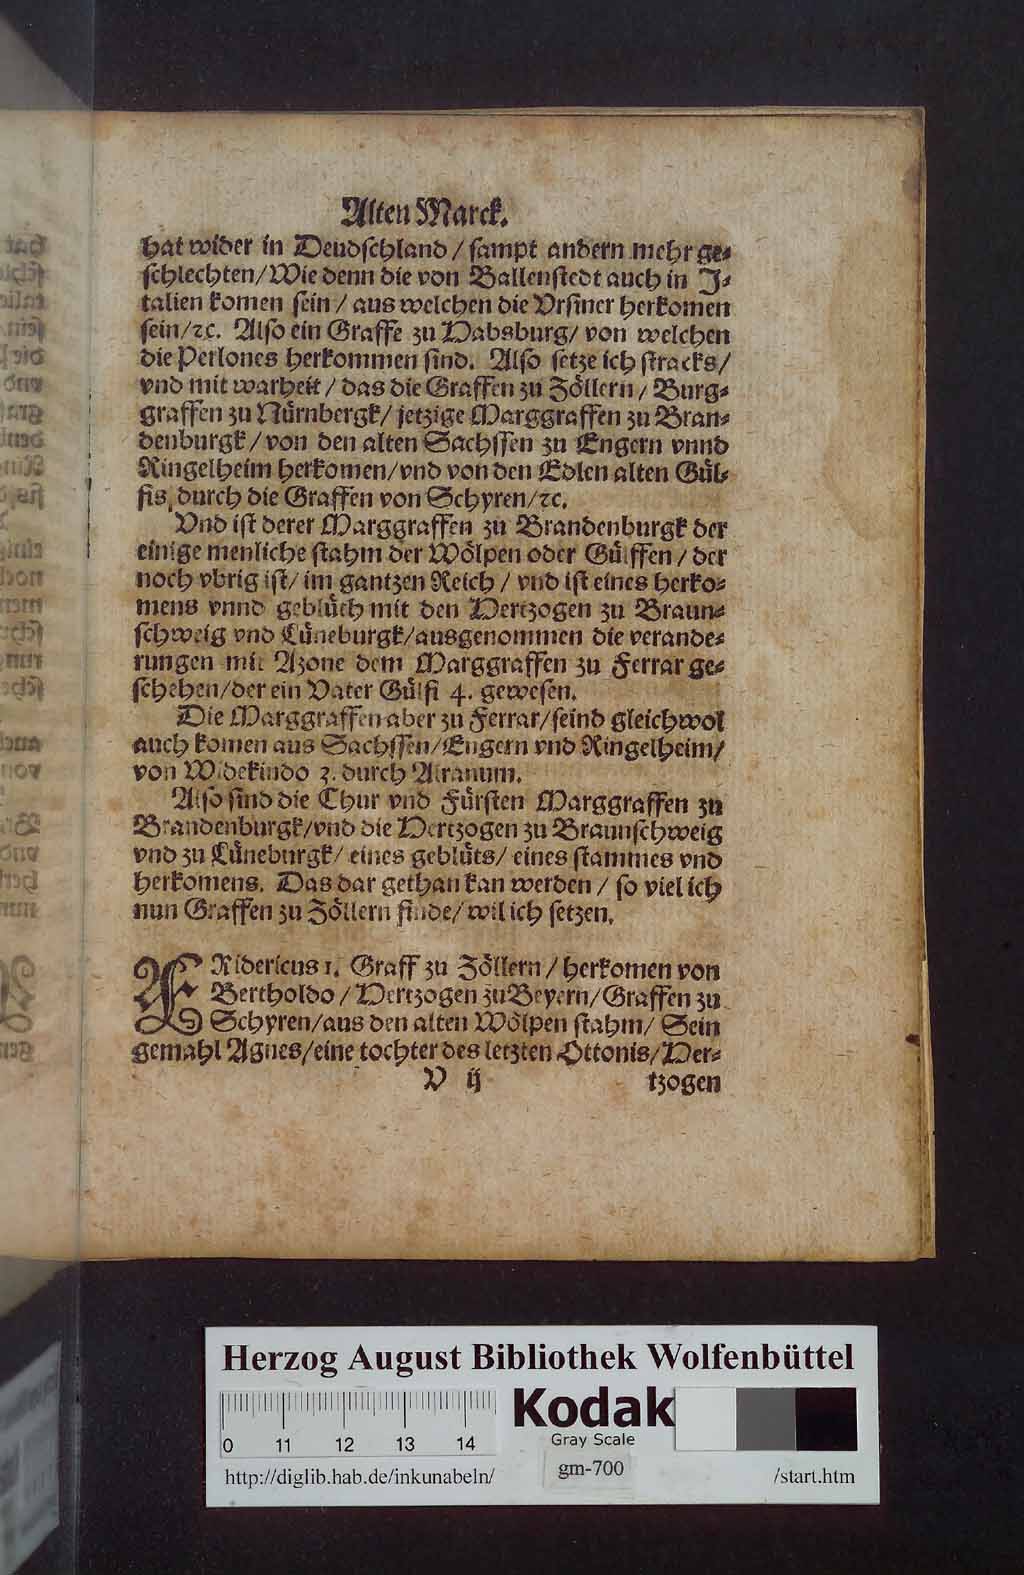 Alten Marck.
hat wider in Deudſchland / ſampt andern mehr ge⸗
ſchlechten/Wie denn die von Ballenſtedt auch in J⸗
talien komen ſein / aus welchen die Vrſiner herkomen
ſein/ꝛc. Alſo ein Graffe zu Habsburg/ von welchen
die Perlones herkommen ſind. Alſo ſetze ich ſtracks/
vnd mit warheit / das die Graffen zu Zoͤllern / Burg⸗
graffen zu Nuͤrnbergk/ jetzige Marggraffen zu Bran⸗
denburgk/von den alten Sachſſen zu Engern vnnd
Ringelheim herkomen/vnd von den Edlen alten Guͤl⸗
fis, durch die Graffen von Schyren/ꝛc.
Vnd iſt derer Marggraffen zu Brandenburgk der
einige menliche ſtahm der Woͤlpen oder Guͤlffen / der
noch vbrig iſt/ im gantzen Reich / vnd iſt eines herko⸗
mens vnnd gebluͤth mit den Hertzogen zu Braun⸗
ſchweig vnd Luͤneburgk/ausgenommen die verande⸗
rungen mit Azone dem Marggraffen zu Ferrar ge⸗
ſchehen/der ein Vater Guͤlfi 4. geweſen.
Die Marggraffen aber zu Ferrar/ſeind gleichwol
auch komen aus Sachſſen/Engern vnd Ringelheim/
von Widekindo 3. durch
Alſo ſind die Chur vnd Fuͤrſten Marggraffen zu
Brandenburgk/vnd die Hertzogen zu Braunſchweig
vnd zu Luͤneburgk/ eines gebluͤts/ eines ſtammes vnd
herkomens. Das dar gethan kan werden / ſo viel ich
nun Graffen zu Zoͤllern finde/ wil ich ſetzen.
FRidericus 1. Graff zu Zoͤllern / herkomen von
Bertholdo / Hertzogen zu Beyern/Graffen zu
Schyren/aus den alten Woͤlpen ſtahm/ Sein
gemahl Agnes/eine tochter des letzten Ottonis/Her⸗
V ij tzogen
Herzog August Bibliothek Wolfenbüttel
0 11 12 13 14
Kodak
Gray Scale
http://diglib.hab.de/inkunabeln/ gm-700 /start.htm